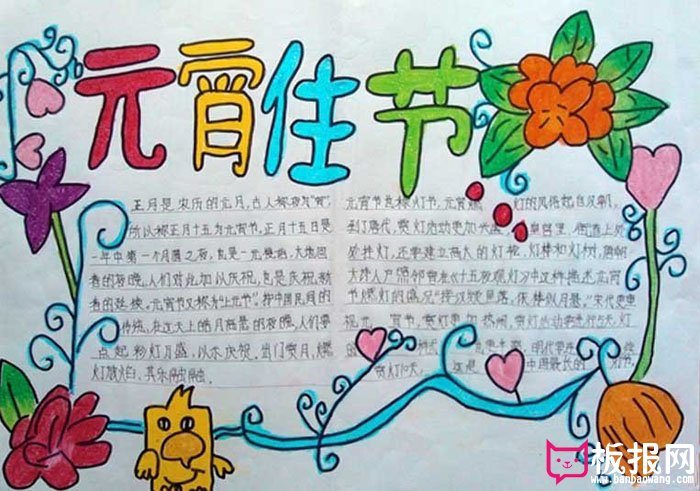 元宵佳节
正月是农历的元月，古人称夜为"宵"，
所以称正月十五为元宵节。正月十五日是
一年中第一个月圆之夜，也是一元复始，大地回
春的夜晚，人们对此加以庆祝，也是庆祝新
春的延续。元宵节又称为"上元节"。按中国民间的
传统，在这天上皓月高悬的夜晚，人们要
点起彩灯万盏，以示庆祝。出门赏月、燃
灯放焰、其乐融融。
元宵节也称灯节，元宵 灯的风俗起自汉朝，
到了唐代，赏灯活动更加 皇宫里、街道上处
处挂灯，还要建立高大的灯轮、灯楼和灯树，唐朝
大诗人卢照邻曾在《十五夜观灯》中这样描述元宵
节燃灯的盛况"接汉疑星落，依楼似月悬。"宋代更重
视元 宵节，赏灯更加热闹，赏灯活动要进行5天，灯
也更丰富。明代要连
赏灯10天， 这是 中国最长的 灯节。
板报网
www.banbaowang.com